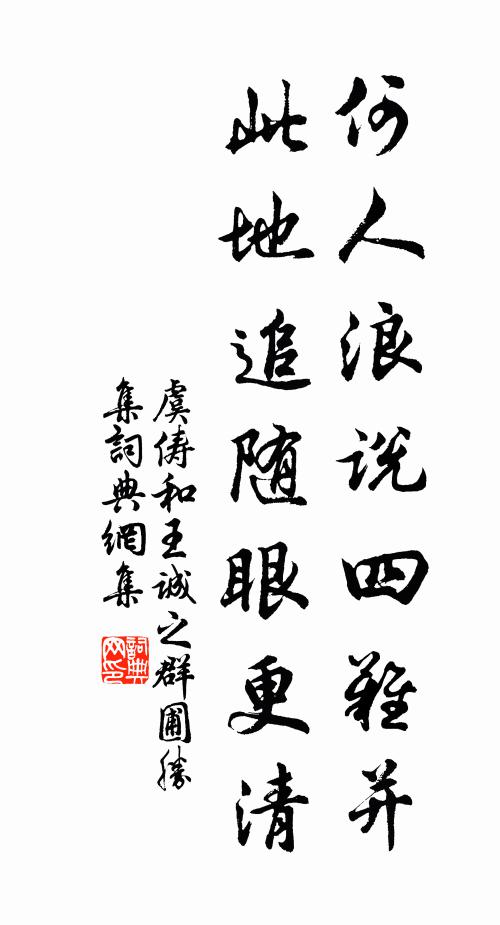 何人浪说四難并
此地追随眼更清
虞儔和王诚之群圃勝
集詞典網集
詞典
网印